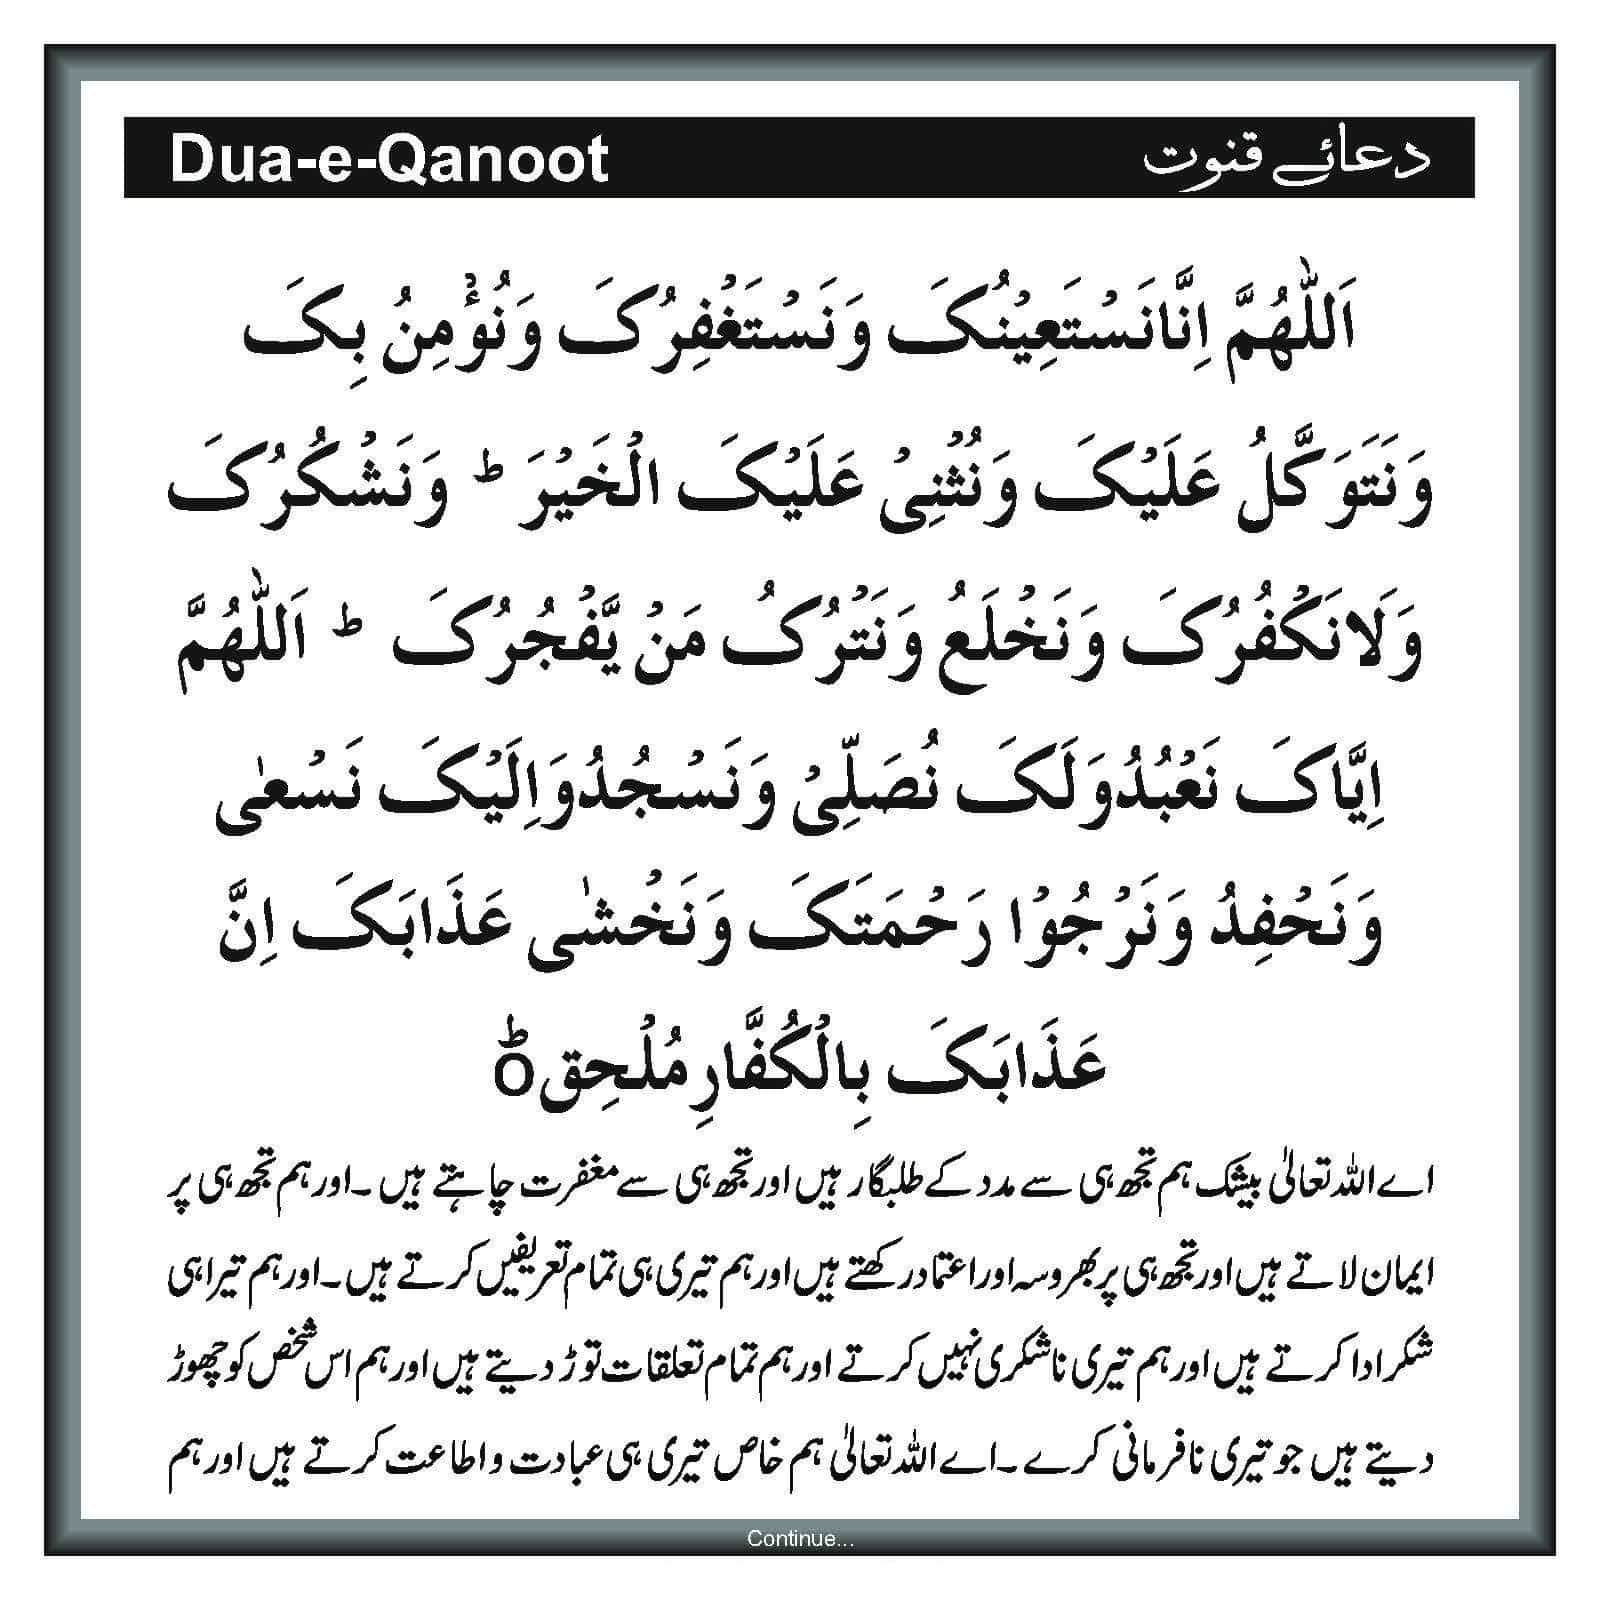 Dua-e-Qanoot دعائے قنوت
اَللّٰهُمَّ اِنَّانَسْتَعِيْنُکَ وَنَسْتَغْفِرُکَ وَنُؤْمِنُ بِکَ
وَنَتَوَکَّلُ عَلَيْکَ وَنُثْنِیْ عَلَيْکَ الْخَيْرَ ؕ وَنَشْکُرُکَ
وَلَانَکْفُرُکَ وَنَخْلَعُ وَنَتْرُکُ مَنْ يَّفْجُرُکَ ؕ اَللّٰهُمَّ
اِيَّاکَ نَعْبُدُوَلَکَ نُصَلِّیْ وَنَسْجُدُوَاِلَيْکَ نَسْعٰی
وَنَحْفِدُ وَنَرْجُوْا رَحْمَتَکَ وَنَخْشٰی عَذَابَکَ اِنَّ
عَذَابَکَ بِالْکُفَّارِمُلْحِق ؕ
اے اللہ تعالیٰ بیشک ہم تجھ ہی سے مدد کے طلبگار ہیں اور تجھ ہی سے مغفرت چاہتے ہیں۔ اور ہم تجھ ہی پر
ایمان لاتے ہیں اور تجھ ہی پر بھروسہ اور اعتماد رکھتے ہیں اور ہم تیری ہی تمام تعریفیں کرتے ہیں۔ اور ہم تیرا ہی
شکر ادا کرتے ہیں اور ہم تیری ناشکری نہیں کرتے اور ہم تمام تعلقات توڑ دیتے ہیں اور ہم اس شخص کو چھوڑ
دیتے ہیں جو تیری نافرمانی کرے۔ اے اللہ تعالیٰ ہم خاص تیری ہی عبادت و اطاعت کرتے ہیں اور ہم
Continue...